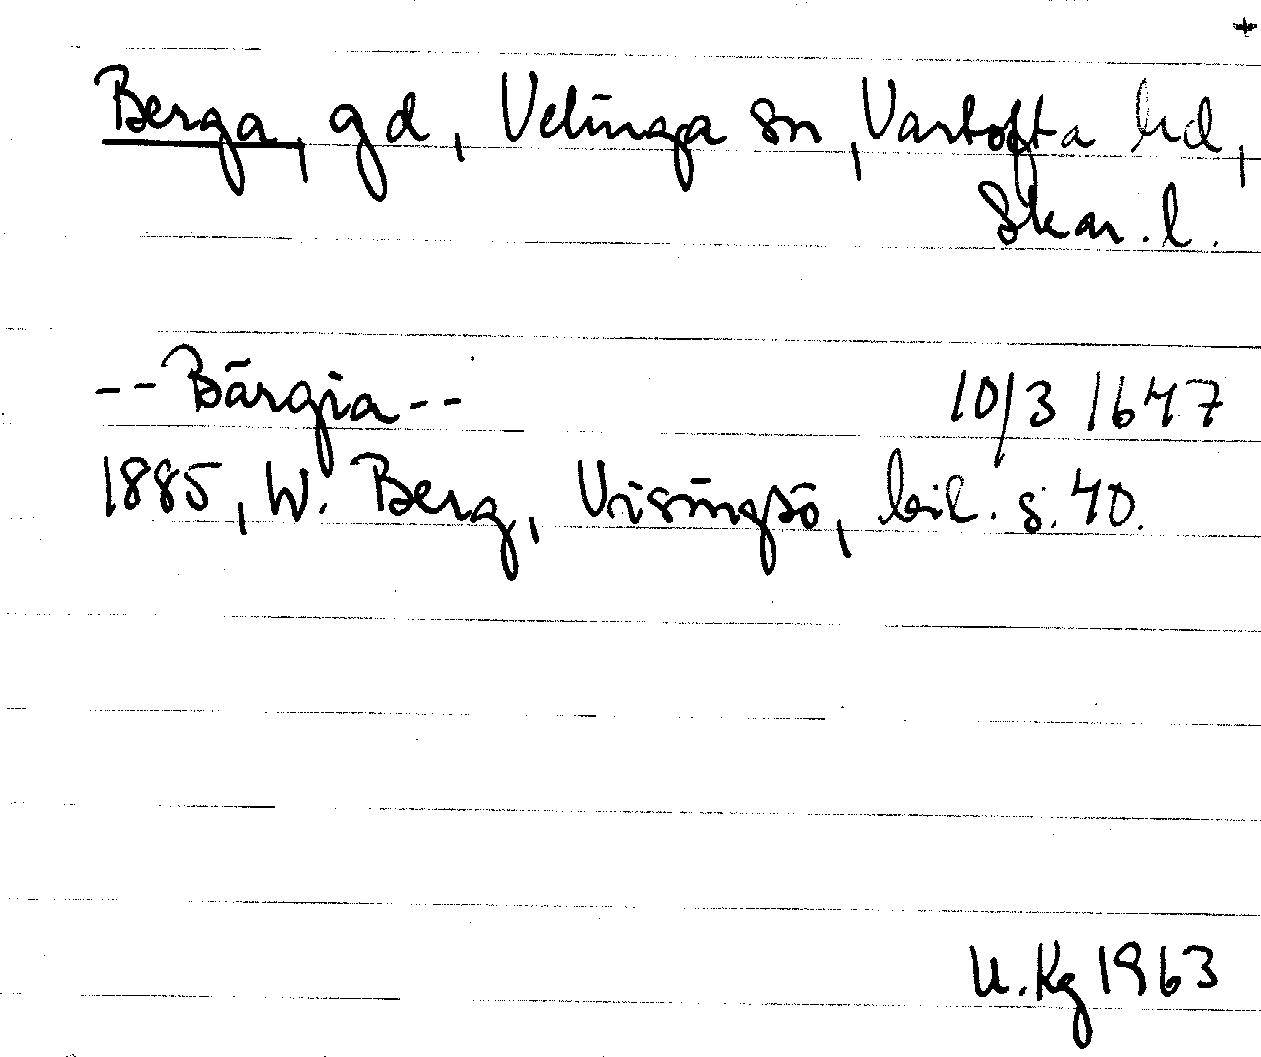 *
Berga, gd, Velinga sn, Vartofta hd,
Skar. l.
-- Bärgia -- 10/3 1647
1885, W. Berg, Visingsö, bil. s. 40.
U. Kg 1963